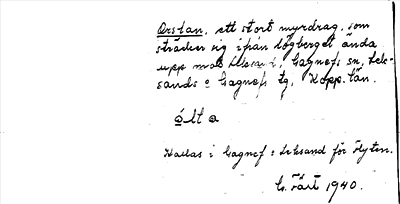 Orstan, ett stort myrdrag, som
sträcker sig ifrån lögberget ända
upp mot, Gagnefs sn, Lek-
sands o Gagnefs tg, Kopp. län.
ólta
Kallas i Gagnef o Leksand för Flyten.
G. 1940.